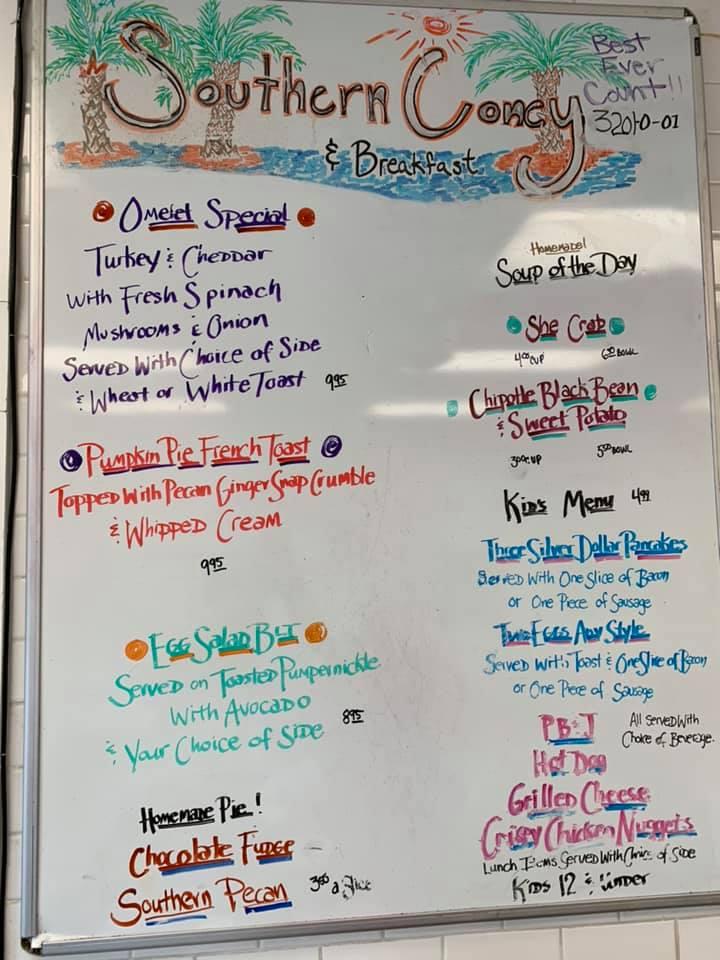 Southern Coney
& Breakfast
Best
Ever
Count!!
Omelet Special
Turkey & Cheddar
With Fresh Spinach
Mushrooms & Onion
Served With Choice of Side
& Wheat or White Toast 9.95
Pumpkin Pie French Toast
Topped With Pecan Ginger Snap Crumble
& Whipped Cream
9.95
Egg Salad BLT
Served on Toasted Pumpernickle
With Avocado
& Your Choice of Side 8.95
Homemade Pie!
Chocolate Fudge
Southern Pecan
a Slice
Homemade!
Soup of the Day
She Crab
4.00 CUP BOWL
Chipotle Black Bean
& Sweet Potato
3.00 CUP 5.50 BOWL
Kid's Menu 4.99
Three Silver Dollar Pancakes
Served With One Slice of Bacon
or One Piece of Sausage
Two Eggs Any Style
Served With Toast & One Slice of Bacon
or One Piece of Sausage
PB&J
All Served With
Choice of Beverage.
Hot Dog
Grilled Cheese
Crispy Chicken Nuggets
Lunch Items Served With Choice of Side
Kids 12 & Under